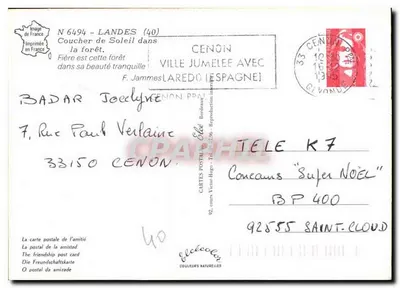 Image
de France
Imprimée
en France
N 6494 - LANDES (40)
Coucher de Soleil dans
la forêt.
Fière est cette forêt
dans sa beauté tranquille
F. Jammes
CENON
VILLE JUMELEE AVEC
LAREDO (ESPAGNE)
33 CENON
BADAR Jocelyne
7, Rue Paul Verlaine
33150 CENON
TELE K7
Concours "Super NOËL"
BP 400
92555 SAINT-CLOUD
40
La carte postale de l'amitié
La postal de la amistad
The friendship post card
Die Freundschaftskarte
O postal da amizade
Elcécolor
COULEURS NATURELLES